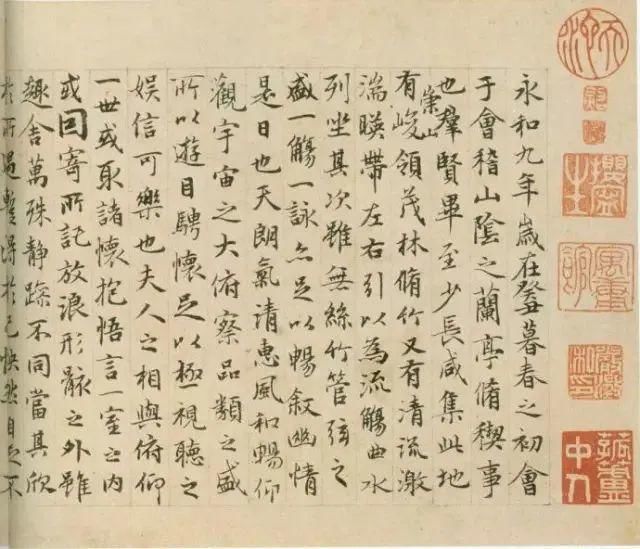 永和九年歲在癸丑暮春之初會
于會稽山陰之蘭亭脩稧事
也羣賢畢至少長咸集此地
有崇山峻領茂林脩竹又有清流激
湍暎帶左右引以為流觴曲水
列坐其次雖無絲竹管弦之
盛一觴一詠亦足以暢敘幽情
是日也天朗氣清惠風和暢仰
觀宇宙之大俯察品類之盛
所以遊目騁懷足以極視聽之
娛信可樂也夫人之相與俯仰
一世或取諸懷抱悟言一室之內
或因寄所託放浪形骸之外雖
趣舍萬殊靜躁不同當其欣
於所遇暫得於己怏然自足不